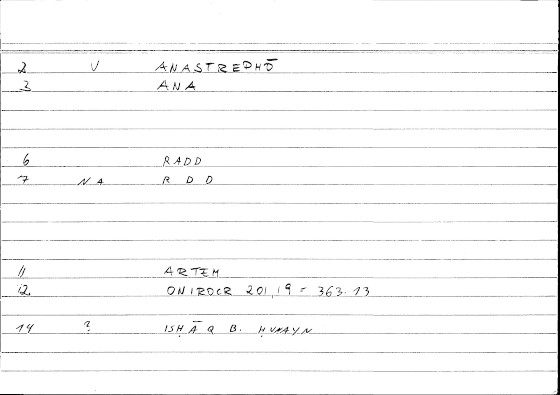 2 V ANASTREPHŌ
3 ANA
6 RADD
7 NA R D D
11 ARTEM
12 ONIROCR 201,19 = 363.13
14 ? ISḤĀQ B. ḤUNAYN